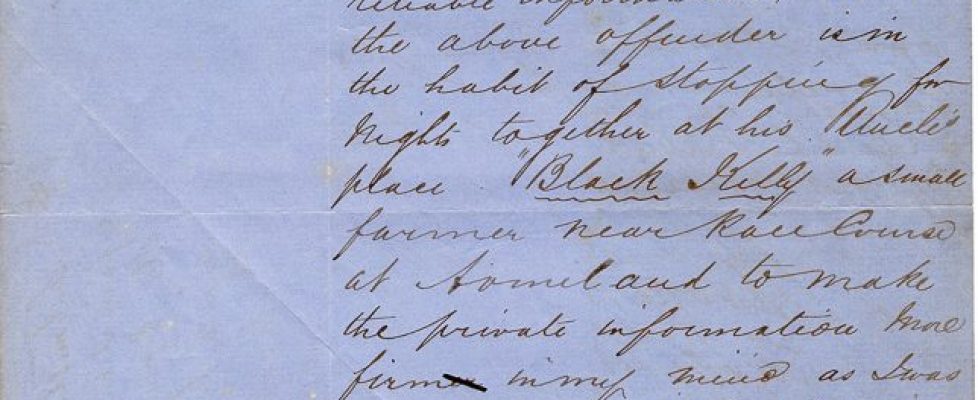 reliable
the above offender is in
the habit of stopping for
Nights together at his Uncle's
place "Black Kelly" a small
farmer near Race Course
at and to make
the private information More
firm in my mind as I was